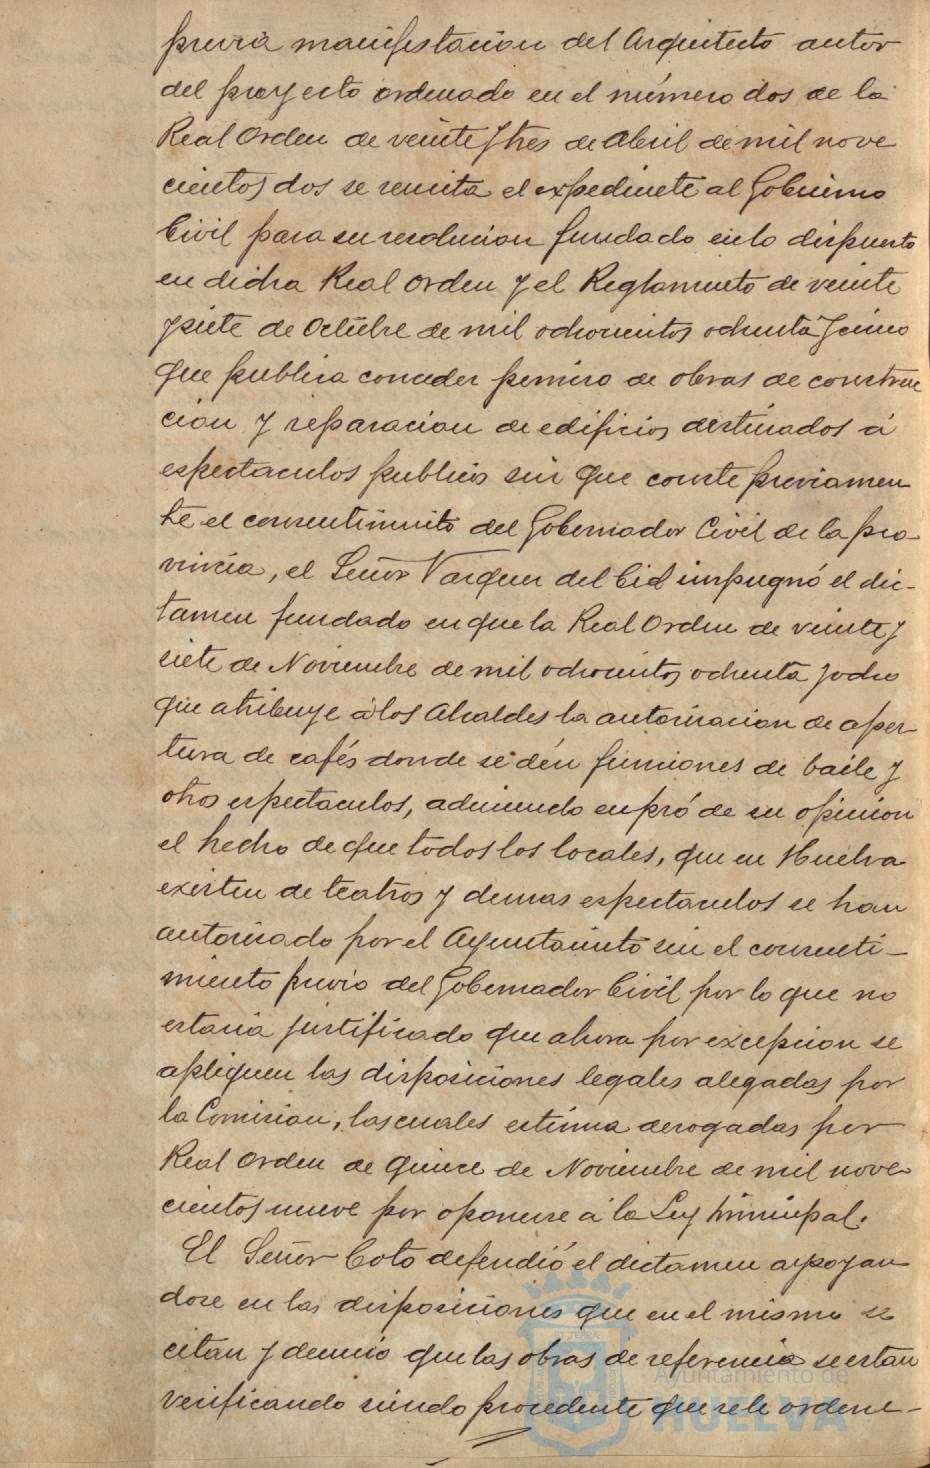 previa manifestacion del Arquitecto autor
del proyecto ordenado en el número dos de la
Real Orden de veinte y tres de Abril de mil nove
cientos dos se remita el expediente al Gobierno
Civil para su resolucion fundado en lo dispuesto
en dicha Real Orden y el Reglamento de veinte
y siete de Octubre de mil ochocientos ochenta y cinco
que publica conceder permiso de obras de construc
cion y reparacion de edificios destinados á
espectaculos publicos sin que conste previamen
te el consentimiento del Gobernador Civil de la pro
vincia, el Señor Vazquez del Cid impugnó el dic-
tamen fundado en que la Real Orden de veinte y
siete de Noviembre de mil ochocientos ochenta y ocho
que atribuye á los Alcaldes la autorizacion de aper
tura de cafés donde se dén funciones de baile y
otros espectaculos, aduciendo en pró de su opinion
el hecho de que todos los locales, que en Huelva
existen de teatros y demas espectaculos se han
autorizado por el Ayuntamiento sin el consenti-
miento previo del Gobernador Civil por lo que no
estaria justificado que ahora por excepcion se
apliquen las disposiciones legales alegadas por
la Comision, las cuales estima derogadas por
Real Orden de quince de Noviembre de mil nove
cientos nueve por oponerse á la Ley Municipal.
El Señor Coto defendió el dictamen apoyan
dose en las disposiciones que en el mismo se
citan y denunció que las obras de referencia se estan
verificando siendo procedente que se le ordene-
Ayuntamiento de
HUELVA